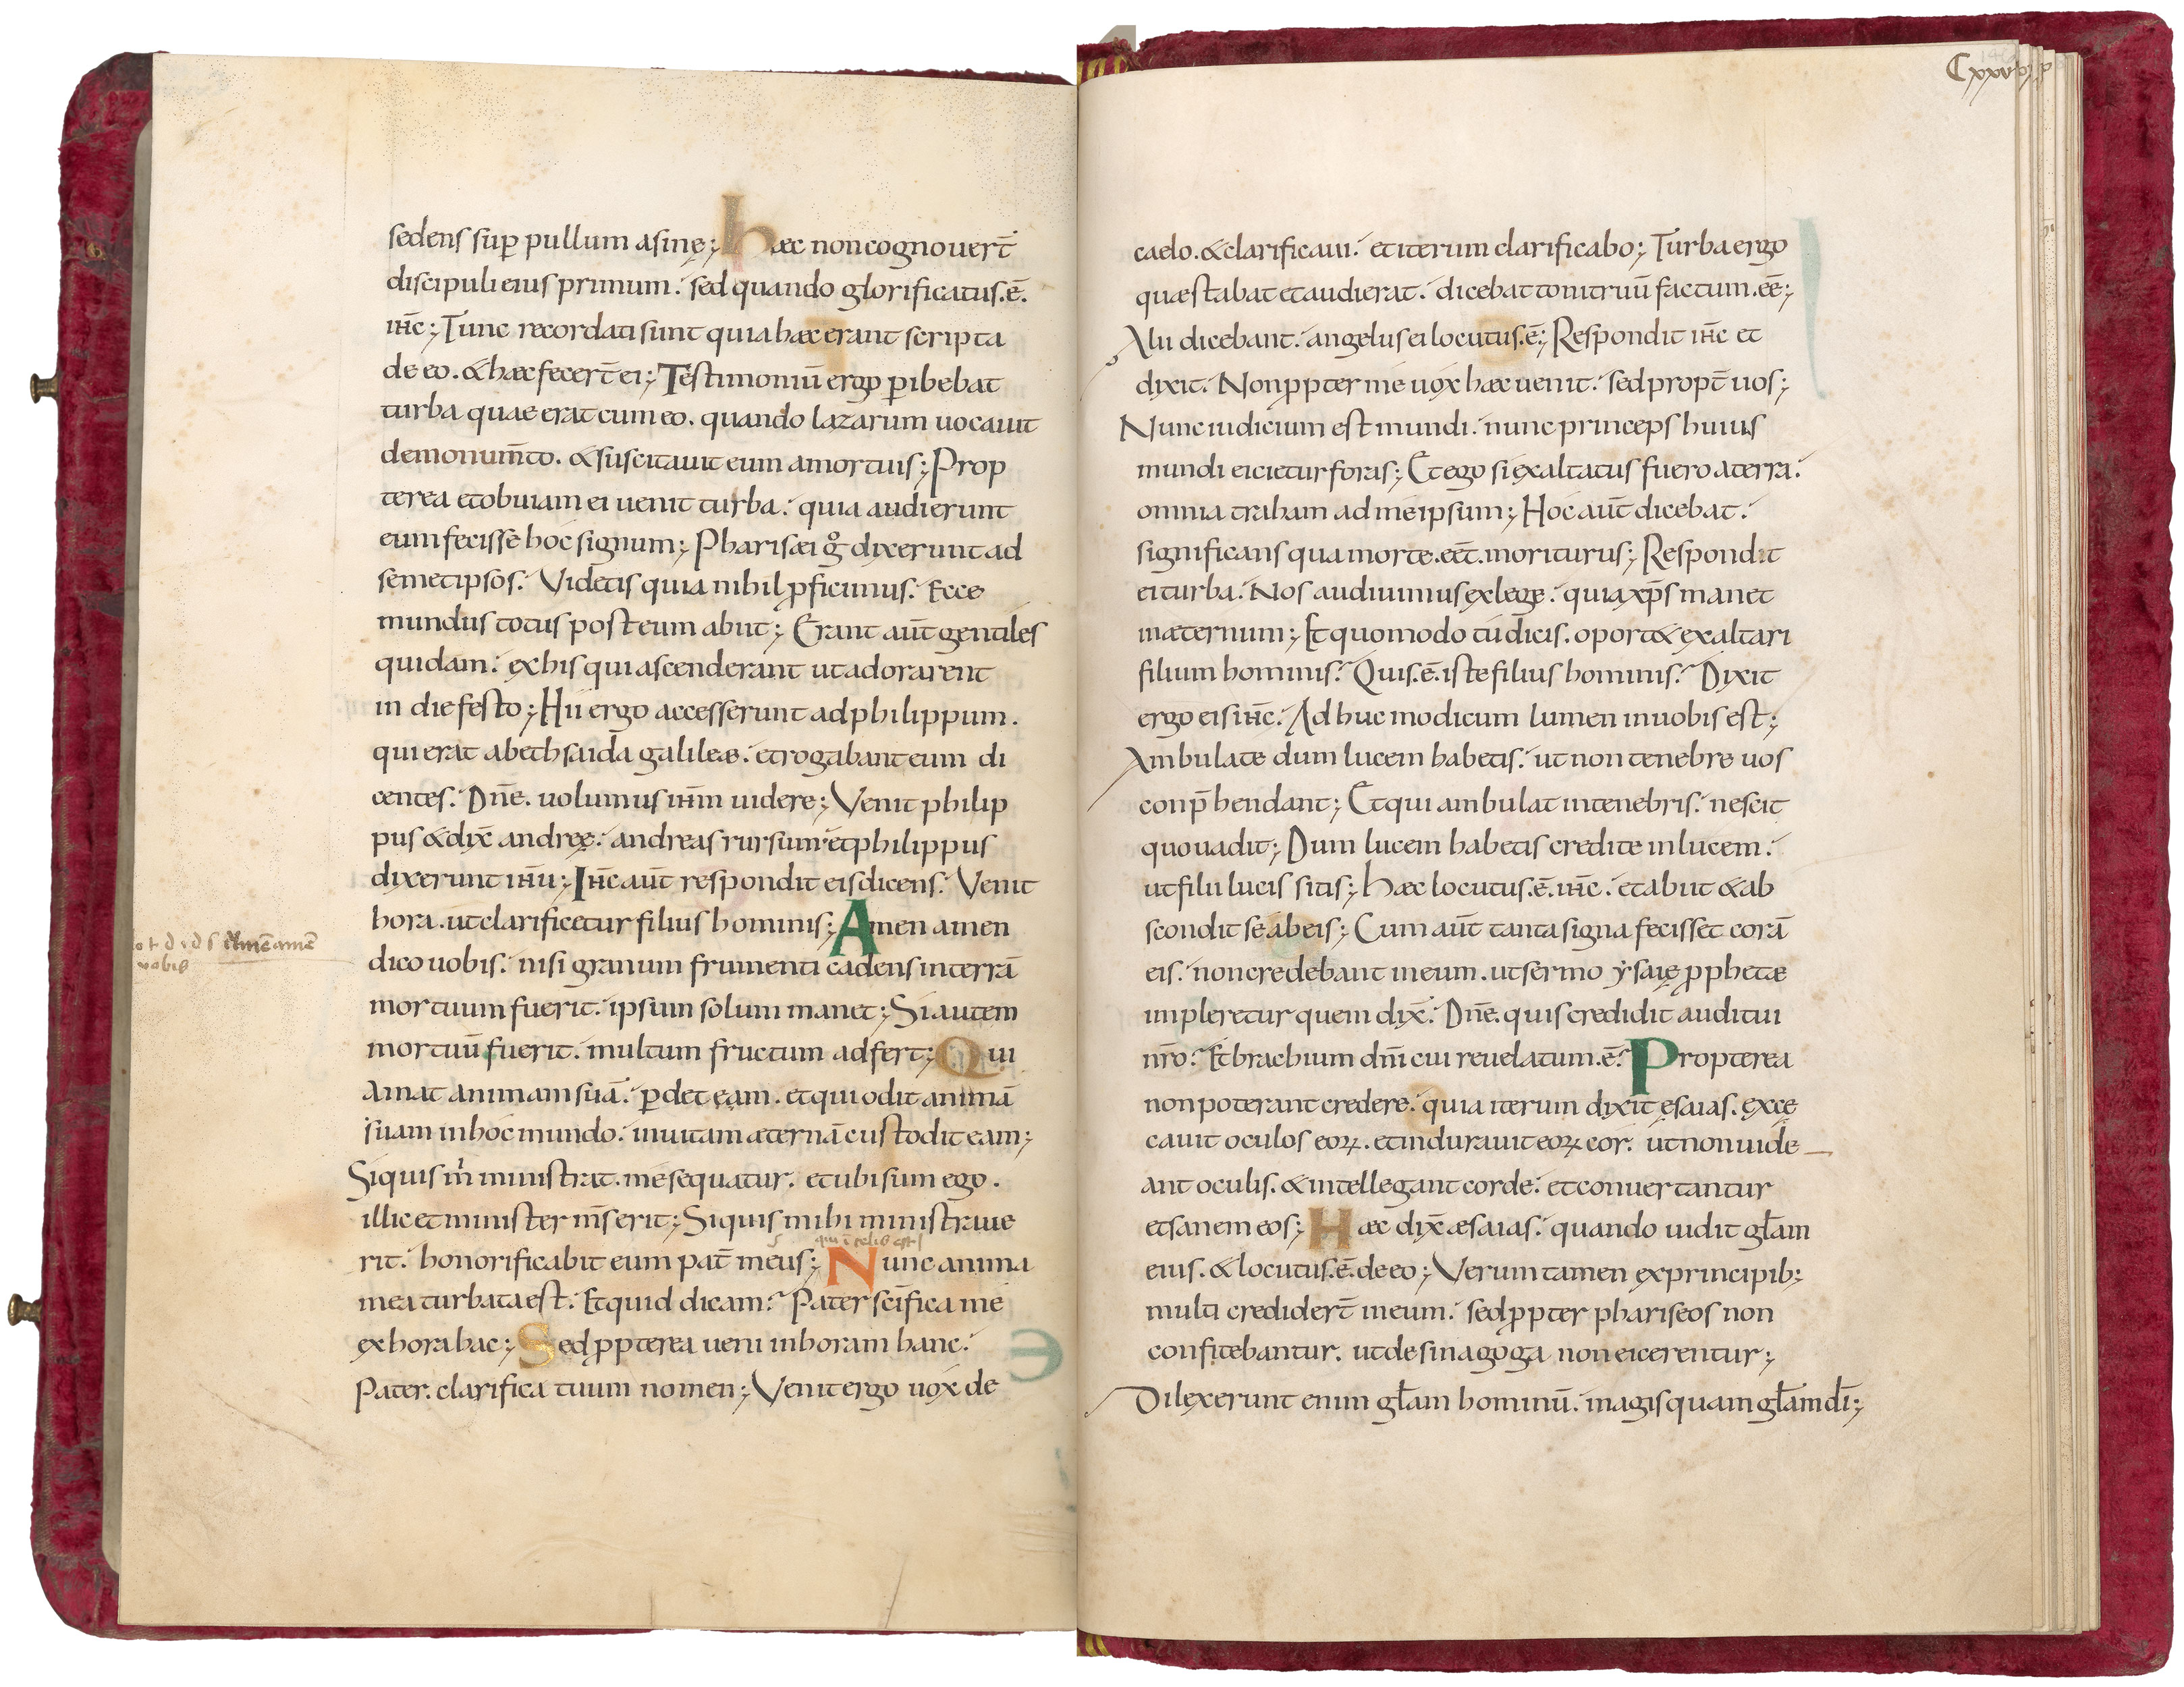 sedens sup̄ pullum asinę; hæc non cognouert̄
discipuli eius primum. sed quando glorificatus. ē.
ih̄c; Tunc recordati sunt quia hæc erant scripta
de eo. & hæc fecert̄ ei; Testimoniū ergo p̱hibebat
turba quae erat cum eo. quando lazarum uocauit
de monum̄to. & suscitauit eum a mortuis; Prop
terea et obuiam ei uenit turba. quia audierunt
eum fecisse hoc signum; Pharisæi gͦ dixerunt ad
semetipsos. Videtis quia nihil ꝓficimus. Ecce
mundus totus post eum abiit; Erant aūt gentiles
quidam. ex his qui ascenderant ut adorarent
in die festo; Hii ergo accesserunt ad philippum.
qui erat a bethsaida galileæ. et rogabant eum di
centes. Dn̄e. uolumus ih̄m uidere; Venit philip
pus & dix̄ andreę. andreas rursum et philippus
dixerunt ih̄u; Ih̄c aūt respondit eis dicens. Venit
hora. ut clarificetur filius hominis; Amen amen
dico uobis. nisi granum frumenti cadens in terrā
mortuum fuerit. ipsum solum manet; Si autem
mortuū fuerit. multum fructum adfert; Qui
amat animam suā. ꝑdet eam. et qui odit animā
suam in hoc mundo. in uitam æternā custodit eam;
Si quis m̄ ministrat. me sequatur. et ubi sum ego.
illic et minister m̄s erit; Si quis mihi ministraue
qui ī celis est
rit. honorificabit eum pat̄ meus; Nunc anima
mea turbata est. Et quid dicam? Pater sc̄ifica me
ex hora hac; Sed ꝓpterea ueni in horam hanc.
Pater. clarifica tuum nomen; Venit ergo uox de
amē amē
uobis
Cxxv
caelo. & clarificaui. et iterum clarificabo; Turba ergo
quæ stabat et audierat. dicebat tonitruū factum. eē;
Alii dicebant. angelus ei locutus. ē; Respondit ih̄c et
dixit. Non ꝓpter me uox hæc uenit. sed propt̄ uos;
Nunc iudicium est mundi. nunc princeps huius
mundi eicietur foras; Et ego si exaltatus fuero a terra.
omnia traham ad me ipsum; Hoc aūt dicebat.
significans qua morte. eēt. moriturus; Respondit
ei turba. Nos audiuimus ex lege. quia xp̄s manet
in æternum; Et quomodo tu dicis. oport& exaltari
filium hominis? Quis. ē. iste filius hominis? Dixit
ergo eis ih̄c. Adhuc modicum lumen in uobis est;
Ambulate dum lucem habetis. ut non tenebre uos
conp̄hendant; Et qui ambulat in tenebris. nescit
quo uadit; Dum lucem habetis credite in lucem.
ut filii lucis sitis; Hæc locutus. ē. ih̄c. et abiit & ab
scondit se ab eis; Cum aūt tanta signa fecisset corā
eis. non credebant in eum. ut sermo ẏsaię ꝓphetæ
impleretur quem dix̄. Dn̄e. quis credidit auditui
nr̄o? Et brachium dn̄i cui reuelatum. ē? Propterea
non poterant credere. quia iterum dixit ęsaias. exce
cauit oculos eoꝝ. et indurauit eoꝝ cor. ut non uide
ant oculis. & intellegant corde. et conuertantur
et sanem eos; Hæc dix̄ æsaias. quando uidit gl̄am
eius. & locutus. ē. de eo; Verum tamen ex principib;
multi credidert̄ in eum. sed ꝓpter phariseos non
confitebantur. ut de sinagoga non eicerentur;
Dilexerunt enim gl̄am hominū. magis quam gl̄am dī;